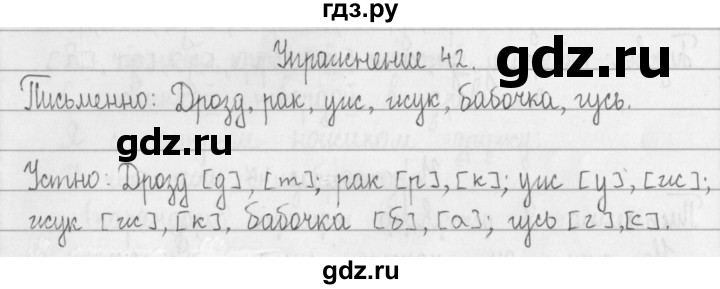 гдз.ру
Упражнение 42.
gdz.ru
Письменно: Дрозд, рак, уж, жук, бабочка, гусь.
gdz.ru
Устно: Дрозд [д], [т]; рак [р], [к]; уж [у], [ж];
жук [ж], [к], бабочка [б], [а]; гусь [г], [с].
gdz.ru